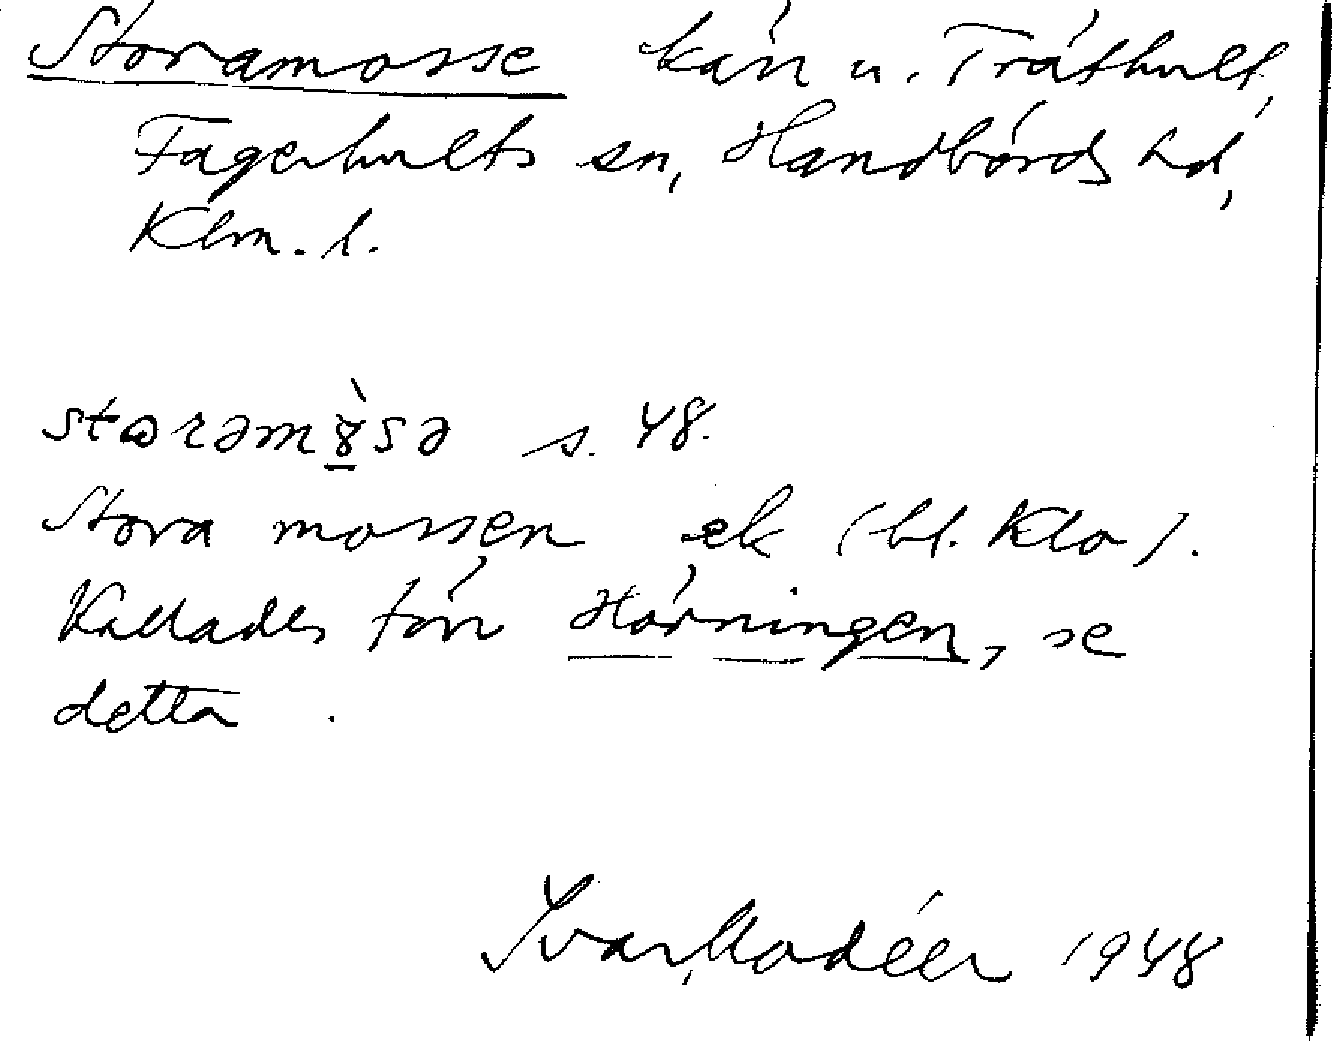 Storamosse kärr u. Träthult,
Fagerhults sn, Handbörds hd,
Klm. l.
storəmɤ̀sə s. 48.
Stora mossen ek (bl. Kla).
Kallades förr Hörningen, se
detta.
Ivar Modéer 1948